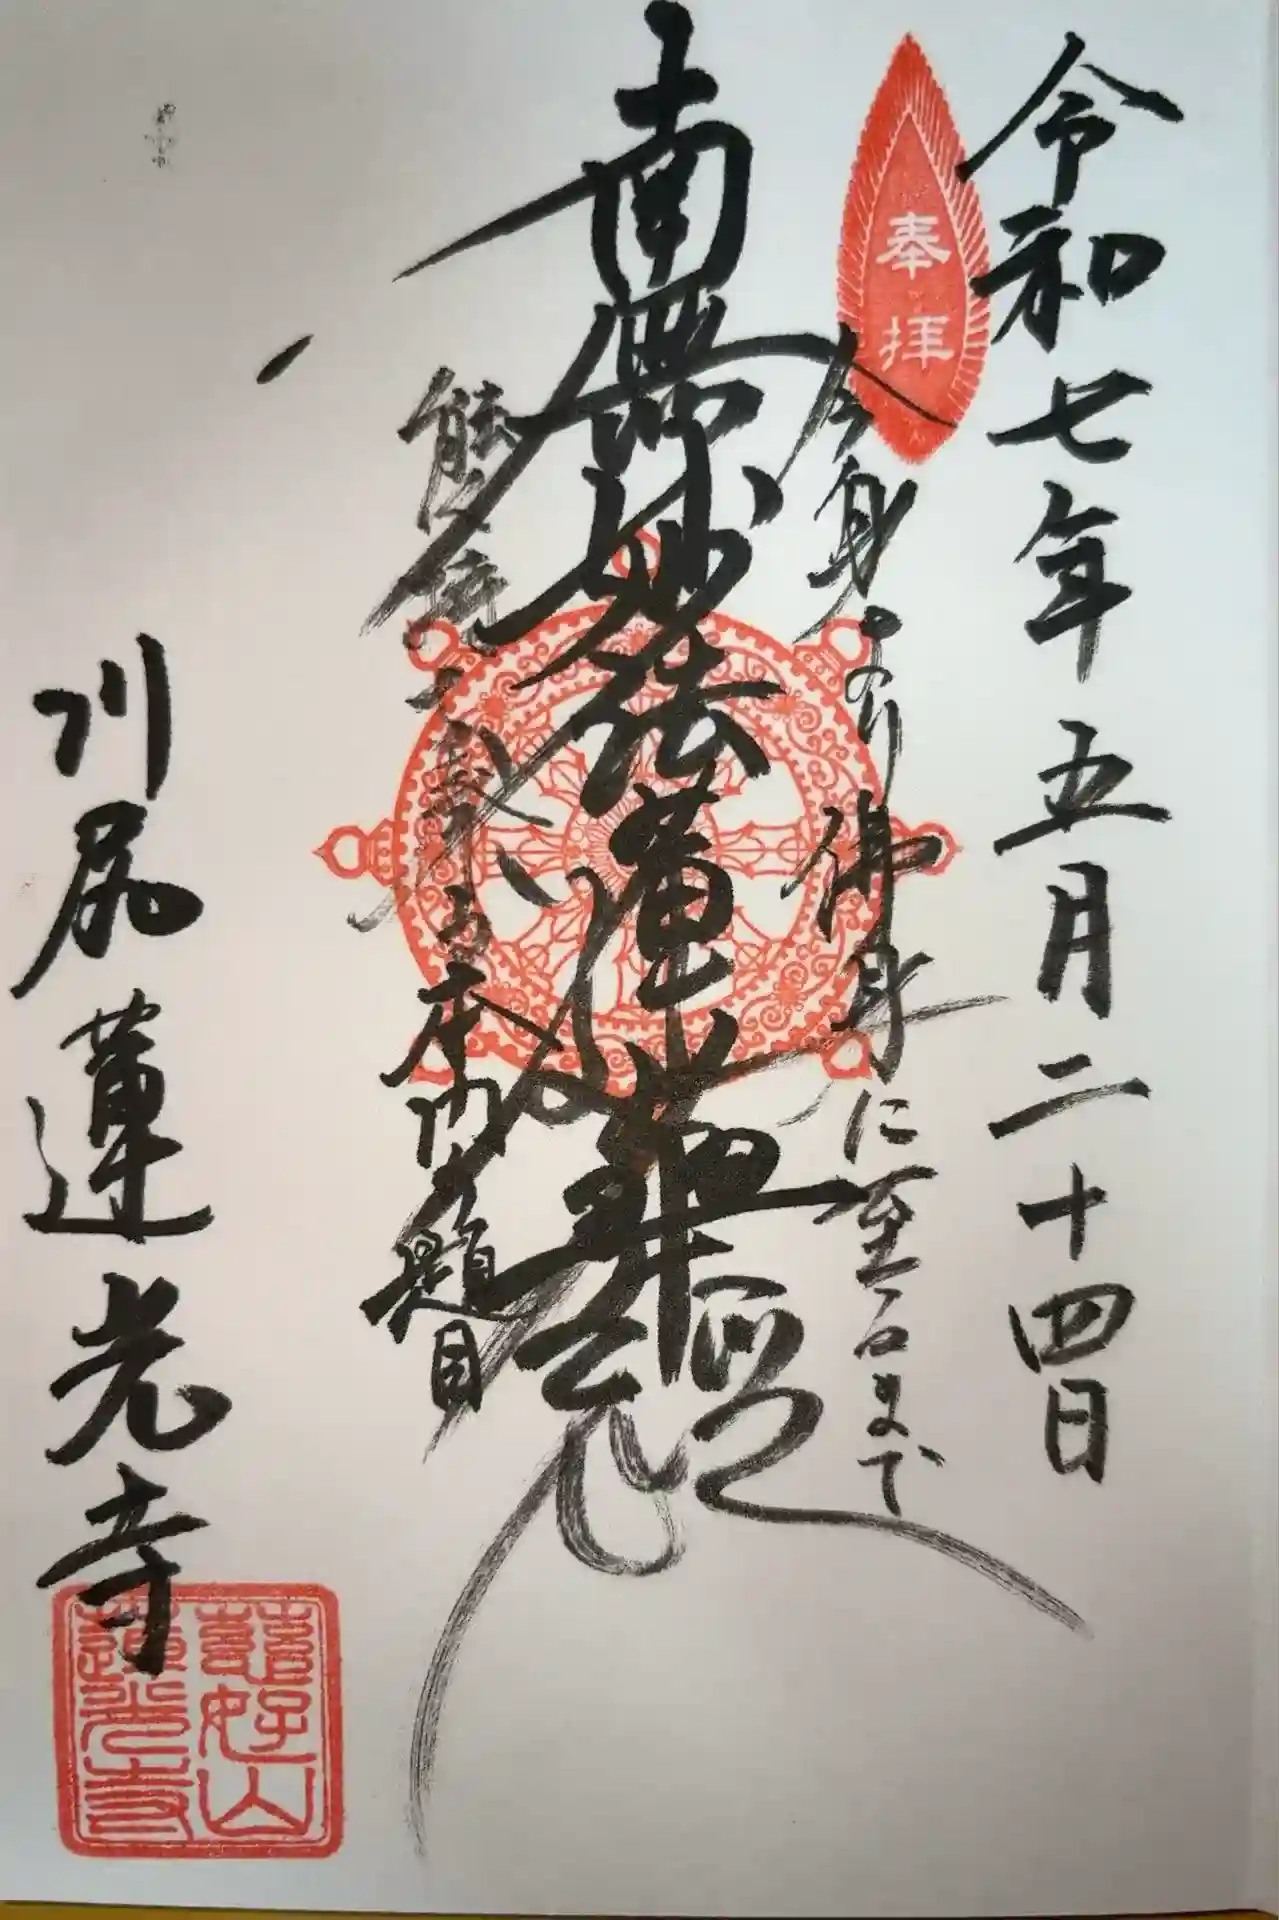 令和七年五月二十四日
奉拝
今身より佛身に至るまで
南無妙法蓮華経
能く持ち奉る
本門の題目
川尻蓮光寺
好山
蓮光寺